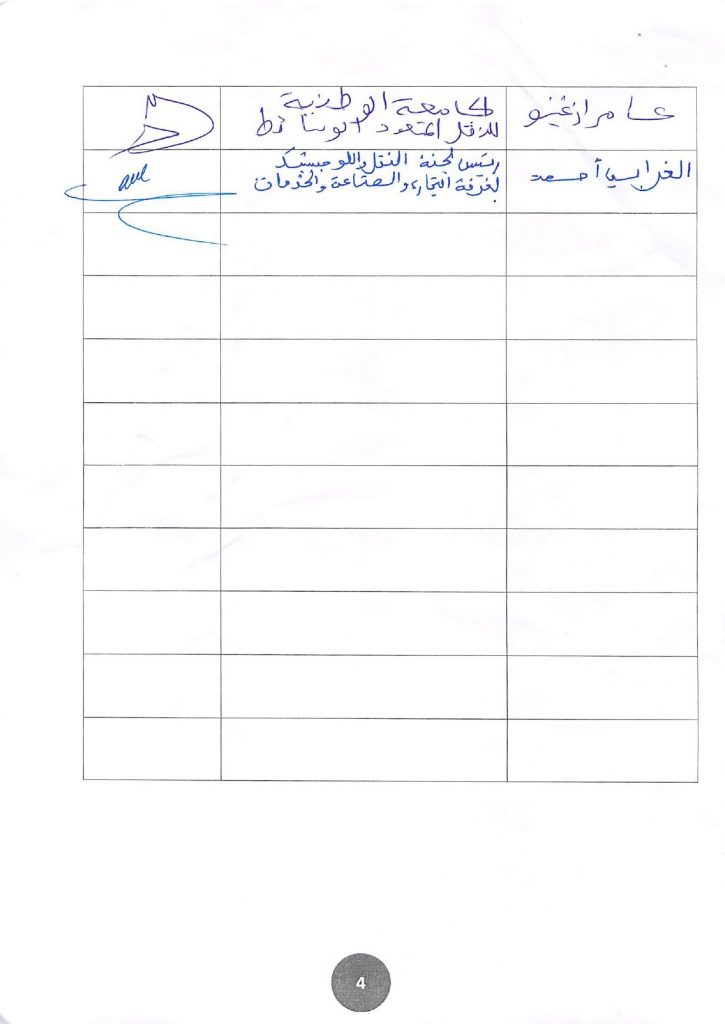 عامر ازغينو
الجامعة الوطنية
للنقل المتعدد الوسائط
الغرابي أحمد
رئيس لجنة النقل واللوجيستيك
لغرفة التجارة والصناعة والخدمات
4